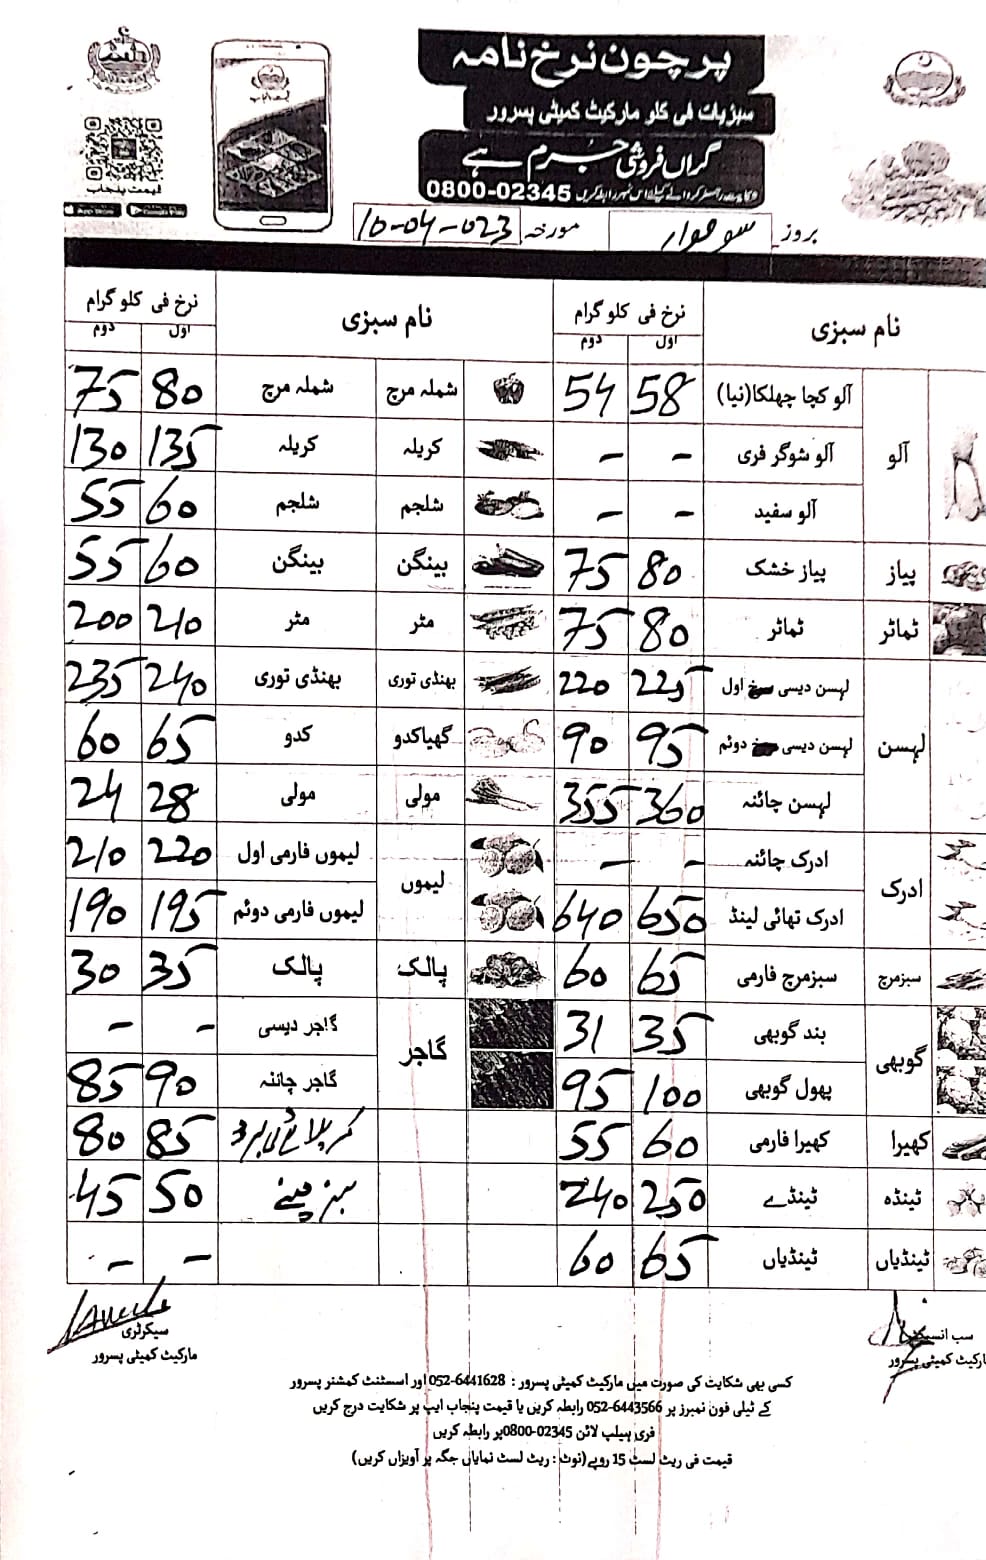 پرچون نرخ نامہ
سبزیات فی کلو مارکیٹ کمیٹی پسرور
گراں فروشی جرم ہے
0800-02345
قیمت پنجاب
بروز سوموار مورخہ 10-04-023
نام سبزی نرخ فی کلو گرام نام سبزی نرخ فی کلو گرام
اول دوم اول دوم
آلو آلو کچا چھلکا(نیا) 58 54 شملہ مرچ شملہ مرچ 80 75
آلو شوگر فری - - کریلہ کریلہ 135 130
آلو سفید - - شلجم شلجم 60 55
پیاز پیاز خشک 80 75 بینگن بینگن 60 55
ٹماٹر ٹماٹر 80 75 مٹر مٹر 210 200
لہسن لہسن دیسی اول 225 220 بھنڈی توری بھنڈی توری 240 235
لہسن دیسی دوئم 95 90 گھیاکدو کدو 65 60
لہسن چائنہ 360 355 مولی مولی 28 24
ادرک ادرک چائنہ - - لیموں لیموں فارمی اول 220 210
ادرک تھائی لینڈ 650 640 لیموں فارمی دوئم 195 190
سبزمرچ سبزمرچ فارمی 65 60 پالک پالک 35 30
گوبھی بند گوبھی 35 31 گاجر گاجر دیسی - -
پھول گوبھی 100 95 گاجر چائنہ 90 85
کھیرا کھیرا فارمی 60 55 85 80
ٹینڈہ ٹینڈے 250 240 50 45
ٹینڈیاں ٹینڈیاں 65 60 - -
سب انسپکٹر سیکرٹری
مارکیٹ کمیٹی پسرور مارکیٹ کمیٹی پسرور
کسی بھی شکایت کی صورت میں مارکیٹ کمیٹی پسرور : 052-6441628 اور اسسٹنٹ کمشنر پسرور
کے ٹیلی فون نمبرز پر 052-6443566 رابطہ کریں یا قیمت پنجاب ایپ پر شکایت درج کریں
فری ہیلپ لائن 02345-0800پر رابطہ کریں
قیمت فی ریٹ لسٹ 15 روپے(نوٹ : ریٹ لسٹ نمایاں جگہ پر آویزاں کریں)